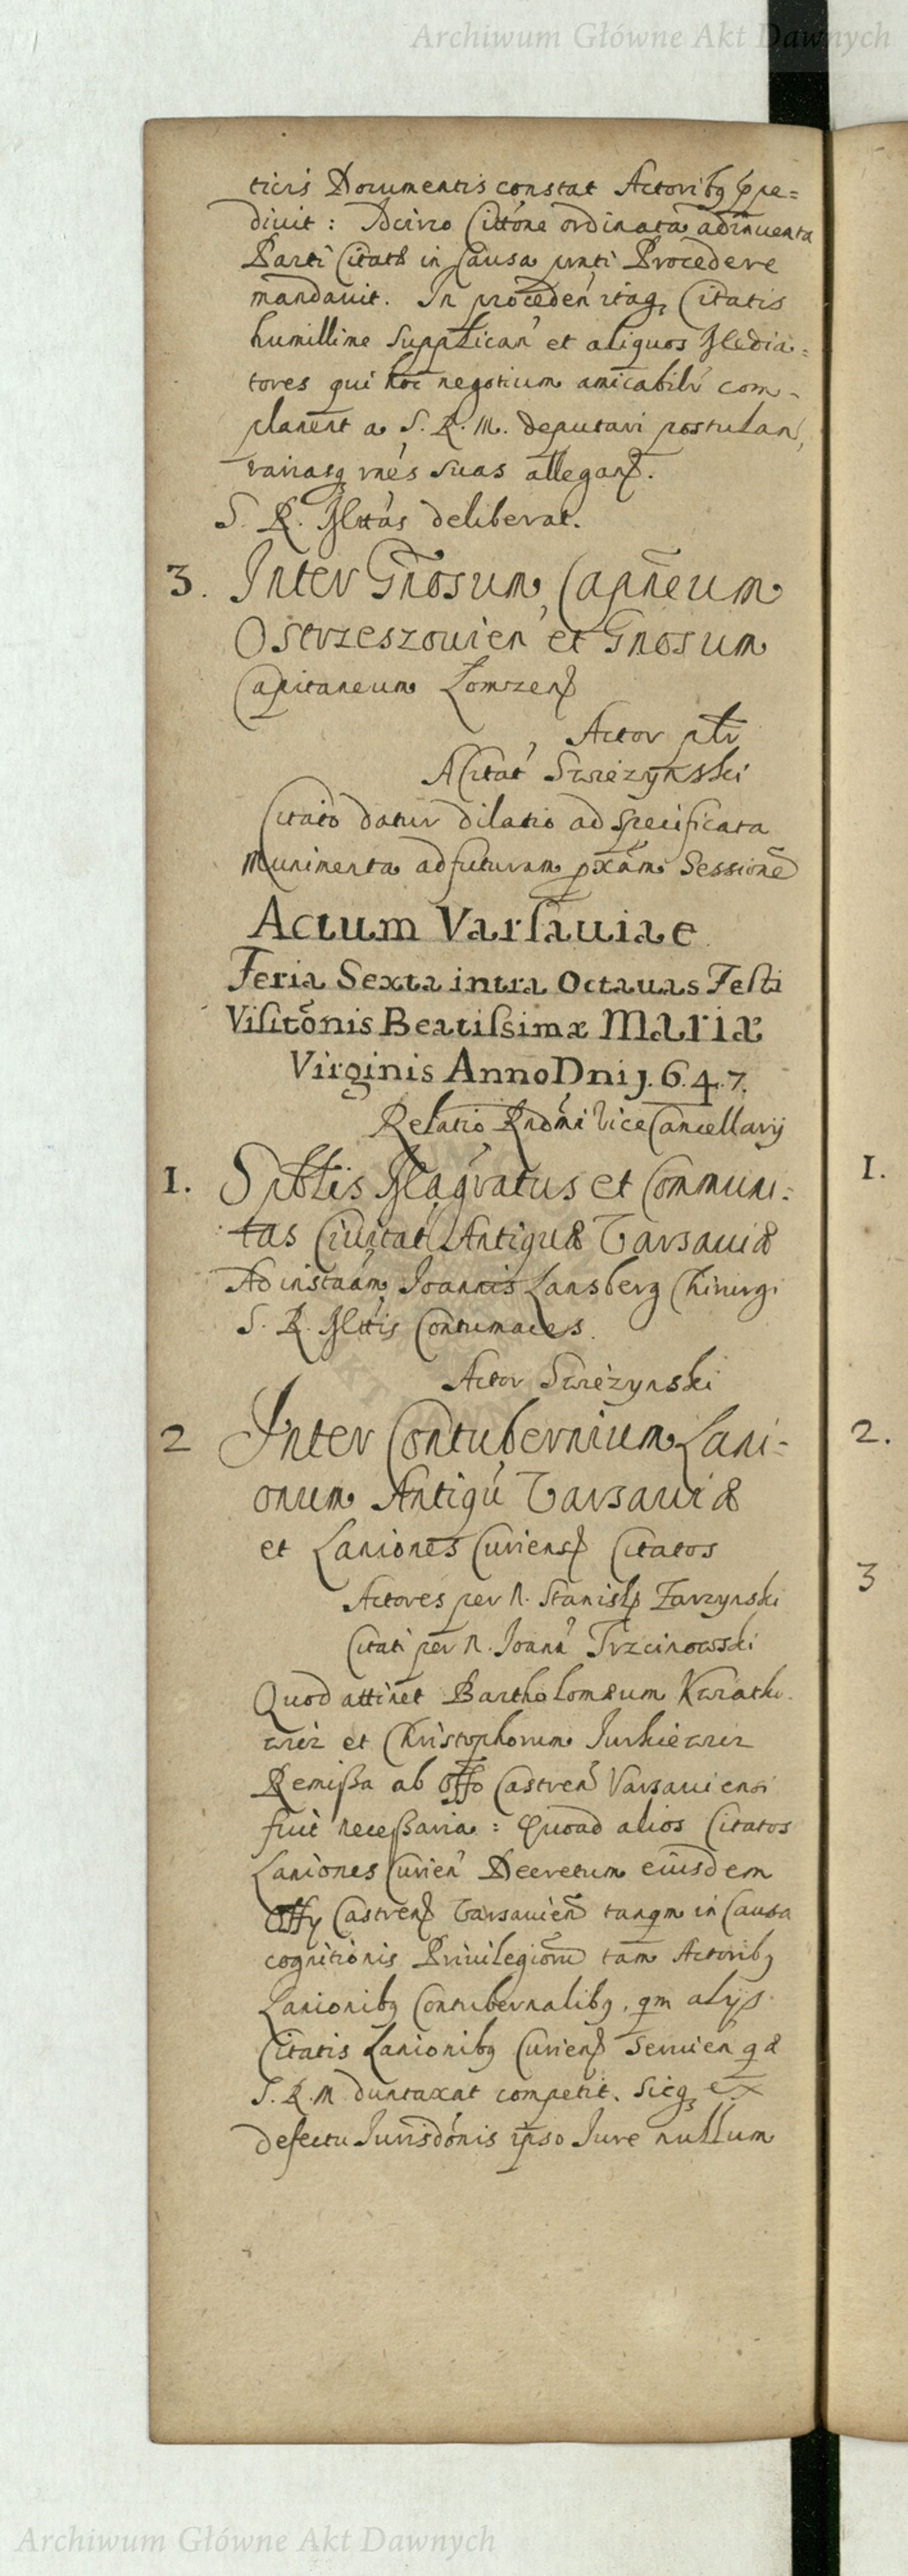 Archiwum Główne Akt Dawnych
ticis Documentis constat Actoribq expe=
diuit: Idcirco Cittõne ordinata adinuenta
Parti Citatæ in Causa pnti Procedere
mandauit. In proceden̕ itaq Citatis
humillime Supplican̕ et aliquos Media=
tores qui hoc negotium amicabilr com-
planent a S. R. M. deputari postulan̕,
variasq rnes suas allegan.
S. R. Mttas deliberat.
3. Inter Gnosum Capneum
Ostrzeszouien̕ et Gnosum
Capitaneum Lomzen
Actor ptr
A Citat̕ Swiezynski
Citato datur dilatio ad specificata
Munimenta ad futuram pxam Sessionẽ
Actum Varsauiae
Feria Sexta intra Octauas Festi
Visitõnis Beatissimæ Mariæ
Virginis Anno Dni 1.6.4.7.
Relatio Rndmi Vice Cancellarij
1. Spblis Magratus et Communi=
tas Ciuitat̕ Antiquæ Varsauiæ
Ad instaam Joannis Lansberg Chirurgi
S. R. Mttis Contumaces.
Actor Swiezynski
2 Inter Contubernium Lani-
onum Antiqu̕ Varsauiæ
et Laniones Curiens Citatos
Actores per N. Stanisl Zarzynski
Citati per N. Joann̕ Trzcinowski
Quod attinet Bartholomæum Kwiatko
wicz et Christophorum Jurkiewicz
Remissa ab Offo Castren̕ Varsauiensi
fuit necessaria: Quoad alios Citatos
Laniones Curien̕ Decretum eiusdem
Offy Castren Varsauien̕ tanqm in Causa
cognitionis Priuilegiorũ tam Actoribq
Lanionibq Contubernalibq, qm alijs
Citatis Lanionibq Curien seruien quæ
S. R. M duntaxat competit. Sicq ex
defectu Jurisdonis ipso Jure nullum
1.
2.
3
Archiwum Główne Akt Dawnych